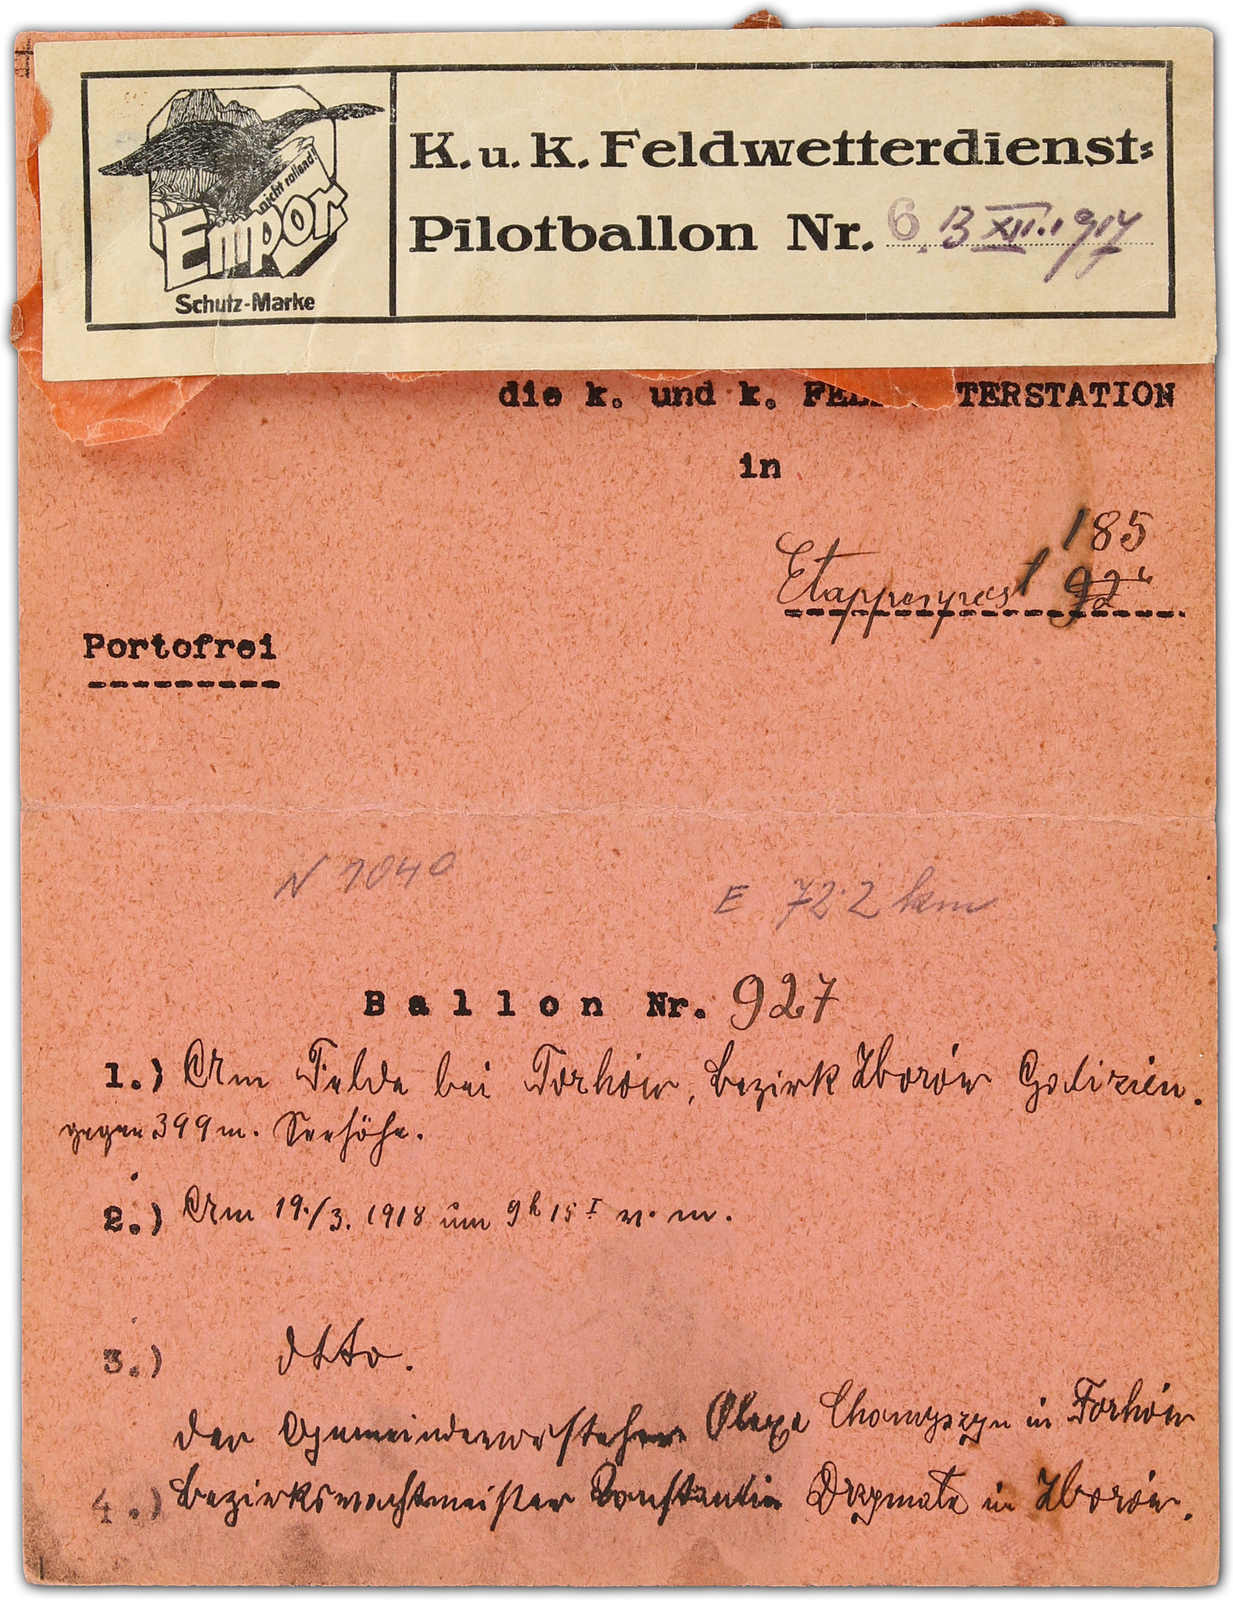 nicht rollend!
Empor
Schutz-Marke
K. u. K. Feldwetterdienst-
Pilotballon Nr. 6. 13 XII. 1917
die k. und k. FELDWETTERSTATION
in
185
Etappenpost
Portofrei
N 1040
E 72.2 km
Ballon Nr. 927
1.) Am Felde bei Torhów, Bezirk Zborów Galizien.
gegen 399 m. Seehöhe.
2.) Am 19./3. 1918 um 9h 15I v. m.
3.) dtto.
der Gemeindevorsteher Olexa Chomyszyn in Torhów
4.) Bezirkswachtmeister Konstantin in Zborów.